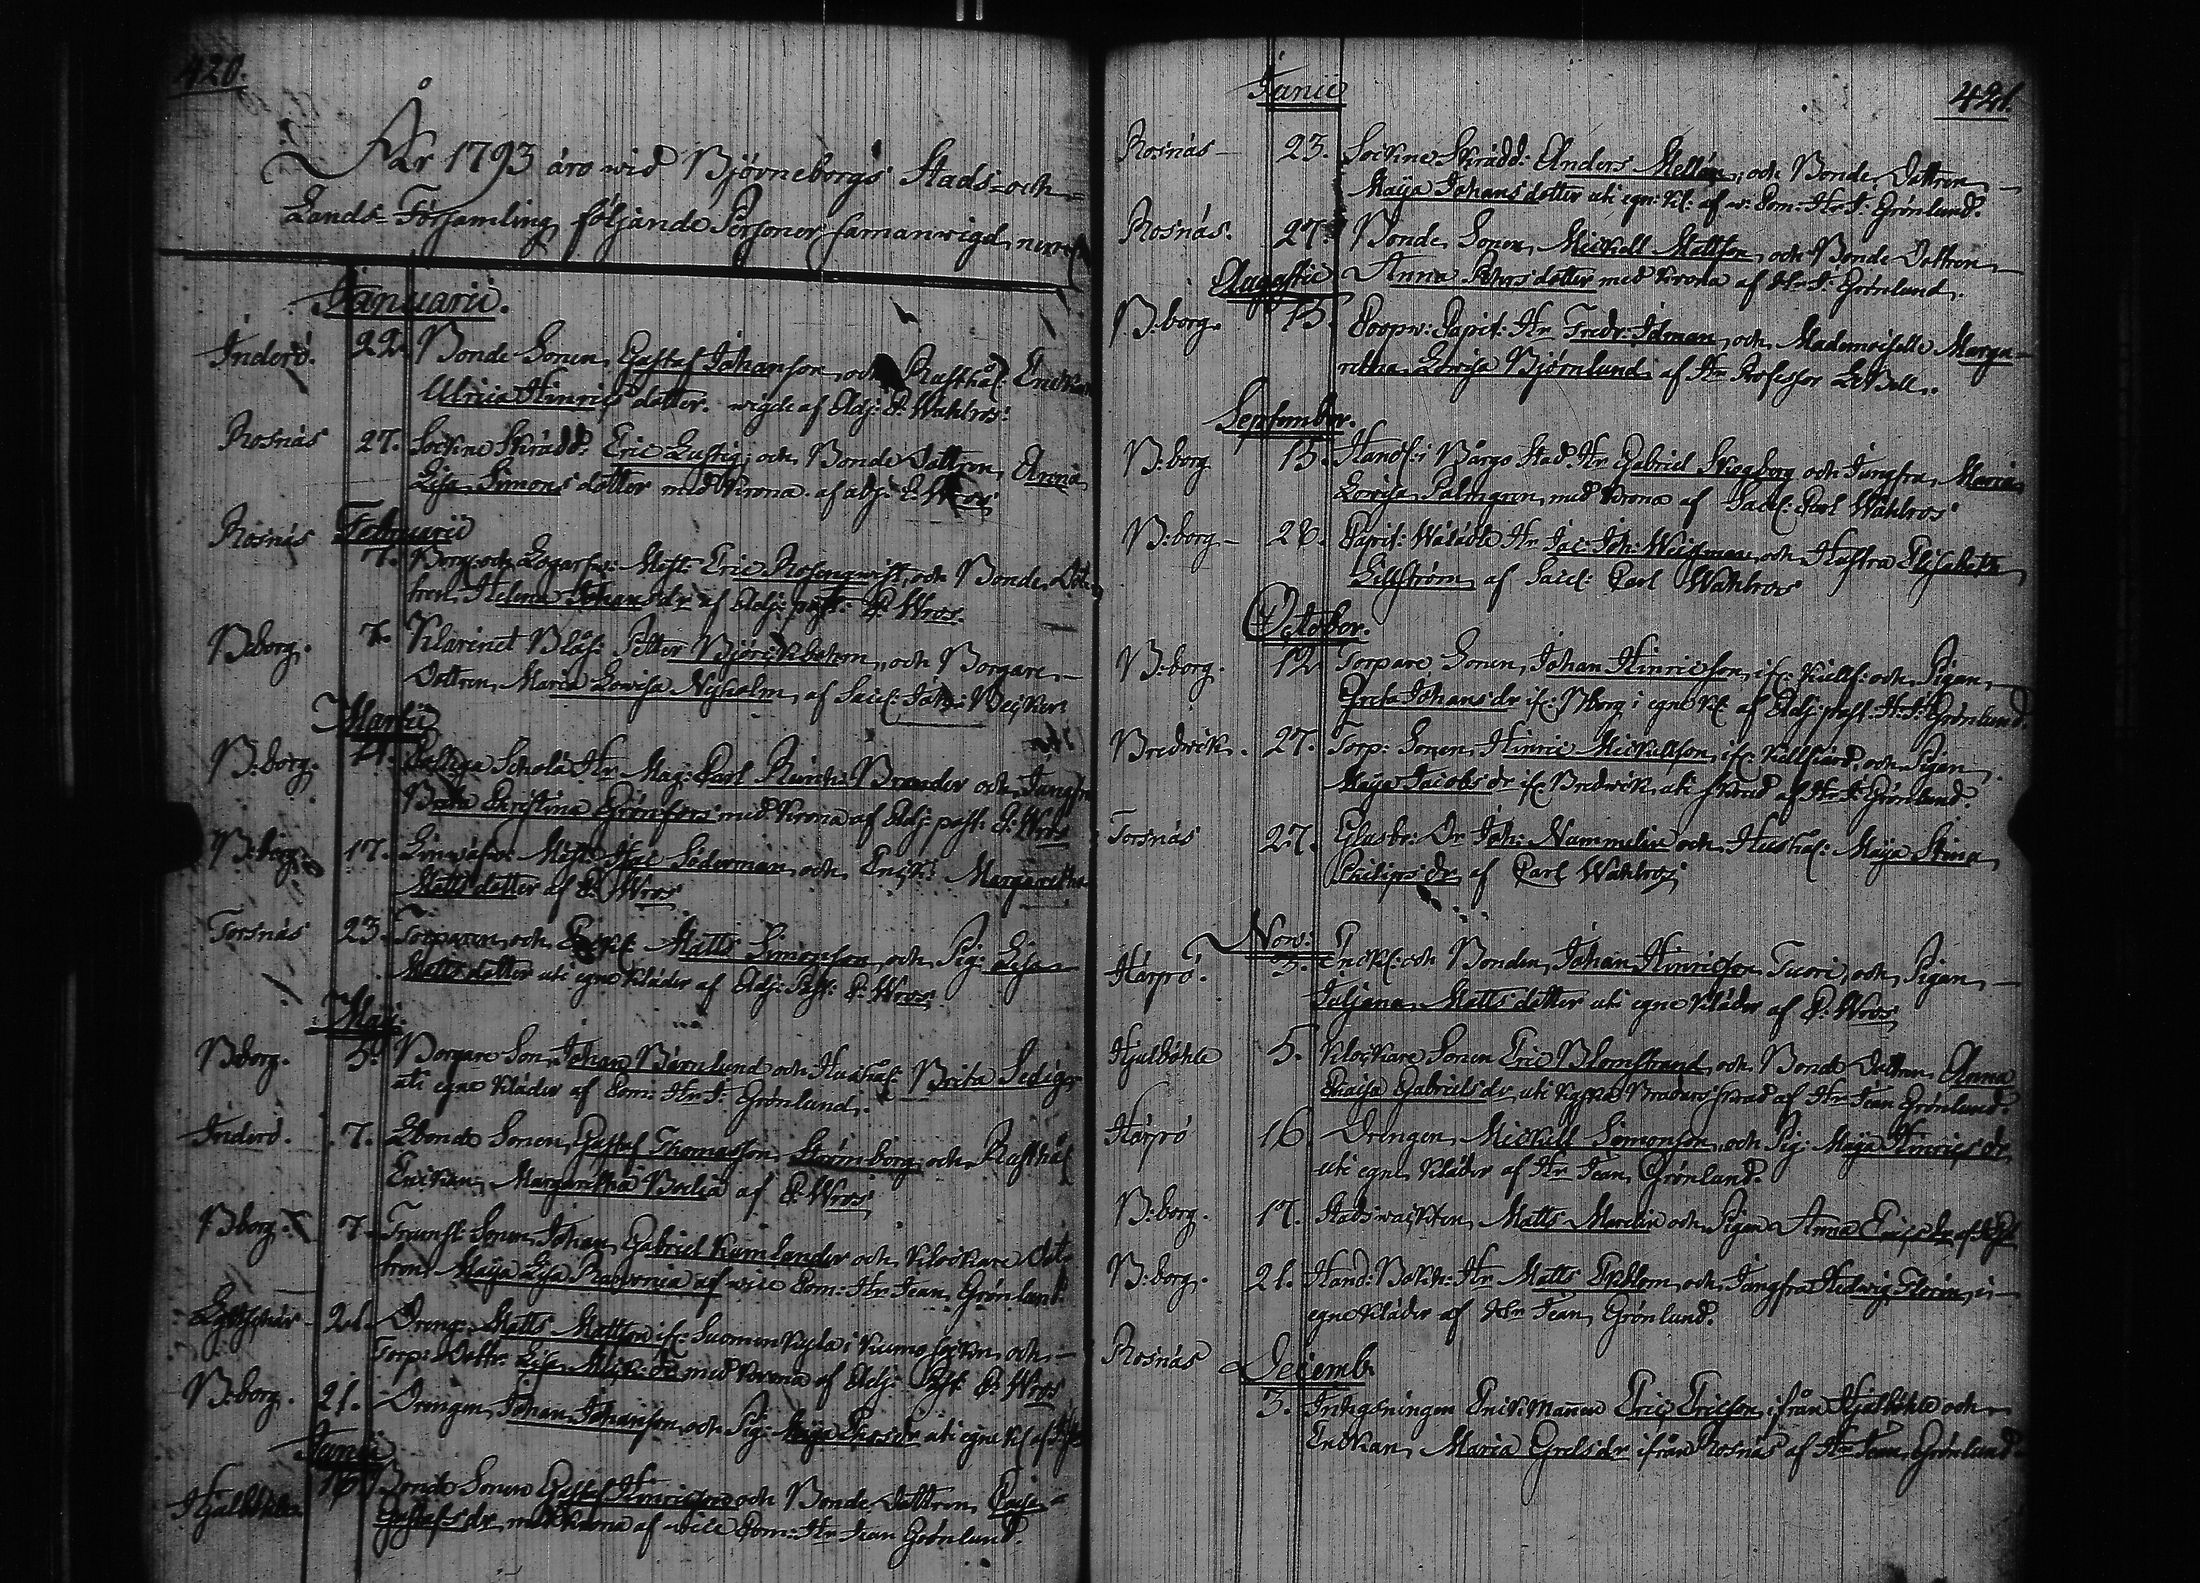 420.
År 1793 äro wid Björneborgs Stads- och
Lands-Församling följande Personer samanwigd
Januarii.
Inderö. 22. Bonde Sonen Gustaf Johansson och Rusthål: Enckan
Ulrica Hinrics dotter. wigde af Adj: C: Wahlros.
Rosnäs 27. Sockne Skrädd: Eric Lustig, och Bonde Dottren Anna
Lisa Simons dotter med Krona af adj: C: Wros
Rosnäs Februarii
7. Borg: och Logarfw: Mäst: Eric Rosenqwist, och Bonde Dot-
tren Helena Johans dr af Adj: past: C: Wros.
B:borg. 7. Klarinet Blås: Petter Björckbohm, och Borgare
Dottren Maria Lowisa Nyholm, af Sacel: Joh:
Martii
B:borg. Schola Hr Mag: Carl Brander och Jungfr
Christina Grönfors med Krona af Adj: past: C: Wros
B:borg. 17. Linwäfw: Mäst: Isac Söderman, och Enck: Margaretha
Matts dotter af C: Wros
Torsnäs 23. Torparen och Enckl: Matts Simonsson, och Pig: Lisa
Matts dotter uti egne Kläder af Adj: Past: C: Wros.
Maij.
B:borg. 5. Borgare Son Johan Björnlund och Hushål: Brita Sedig
uti egne Kläder af Com: Hr J: Grönlund.
Inderö. 7. Bonde Sonen Gustaf Thomasson Strömborg, och Rusthål
Enckan Margaretha af C: Wros
B:borg. 7. Sonen Johan Gabriel Kumlander och Klockare Dot-
tren Maija Lisa af wice Com: Hr Jean Grönlund.
21. Dreng: Matts Mattsson if: Suomenkyla i Kumo Sockn, och
Torp: Dottr: Lisa Mick: dr med Krona af Adj: Past: C: Wros
B:borg. 21. Drengen Johan Johansson, och Pig: Maija uti egne Kl: af
Junii
Hjulböhle Bonde Sonen Gustaf Hinricsson och Bonde Dottren Caisa
Gustafs dr med Krona af wice Com: Hr Jean Grönlund.
421.
Junii
Rosnäs 23. Sockne Skrädd: Anders Mellen, och Bonde Dottren
Maija Johans dotter uti egn: Kl: af w: Com: Hr J: Grönlund.
Rosnäs. 27. Bonde Sonen Mickell Mattson, och Bonde Dottren
Anna dotter med Krona af Hr J: Grönlund.
Augusti
B:borg. 15. Coopw: Capit: Hr Fredr: Idman, och Mademoiselle Marga-
retha Lovisa Björnlund af Hr Professor LeBell.
September.
B:borg 15. Handl: i Bårgo Stad Hr Gabriel Skogberg och Jungfru Maria
Lovisa Palmgren med Krona af Sacel: Carl Wahlros
B:borg 28. Capit: Wälädle Hr Jac: Joh: Weisman och Hustru Elisabeth
Lillström af Sacel: Carl Wahlros
October.
B:borg. 12 Torpare Sonen Johan Hinricsson if: Kullf: och Pigan
Greta Johans dr if: B:borg i egne Kl: af Adj: past: Hr J: Grönlund.
Bredwik. 27. Torp: Sonen Hinric Mickellson if: och Pigan
Maija Jacobs dr if: Bredwik uti skrud af Hr J: Grönlund.
Torsnäs 27. Glasbr: Dr Joh: Nummelin och Hushål: Maija Stina
Philips dr af Carl Wahlros
Nov:
Härpö. 3. Enckl: och Bonden Johan Hinricsson Tuori, och Pigan
Juliana Matts dotter uti egne Kläder af C: Wros
Hjulböhle 5. Klockare Sonen Eric Blomstrand, och Bonde Dottren Anna
Caisa Gabriels dr uti skrud af Hr Jean Grönlund.
Härpö 16. Drengen Mickell Simonson och Pig: Maija Hinrics dr
uti egne Kläder af Hr Jean Grönlund.
B:borg. 17. Stadswackten Matts och Pigan Anna Erics dr af
B:borg. 21. Hand: Bokh: Hr Matts Ekblom, och Jungfru Hedwig Florin, i
egne Kläder af Hr Jean Grönlund.
Rosnäs Decemb:
3. Enckemannen Eric Ericson ifrån Hjulböhle och
Enckan Maria Grels dr ifrån Rosnäs af Hr Jean Grönlund.